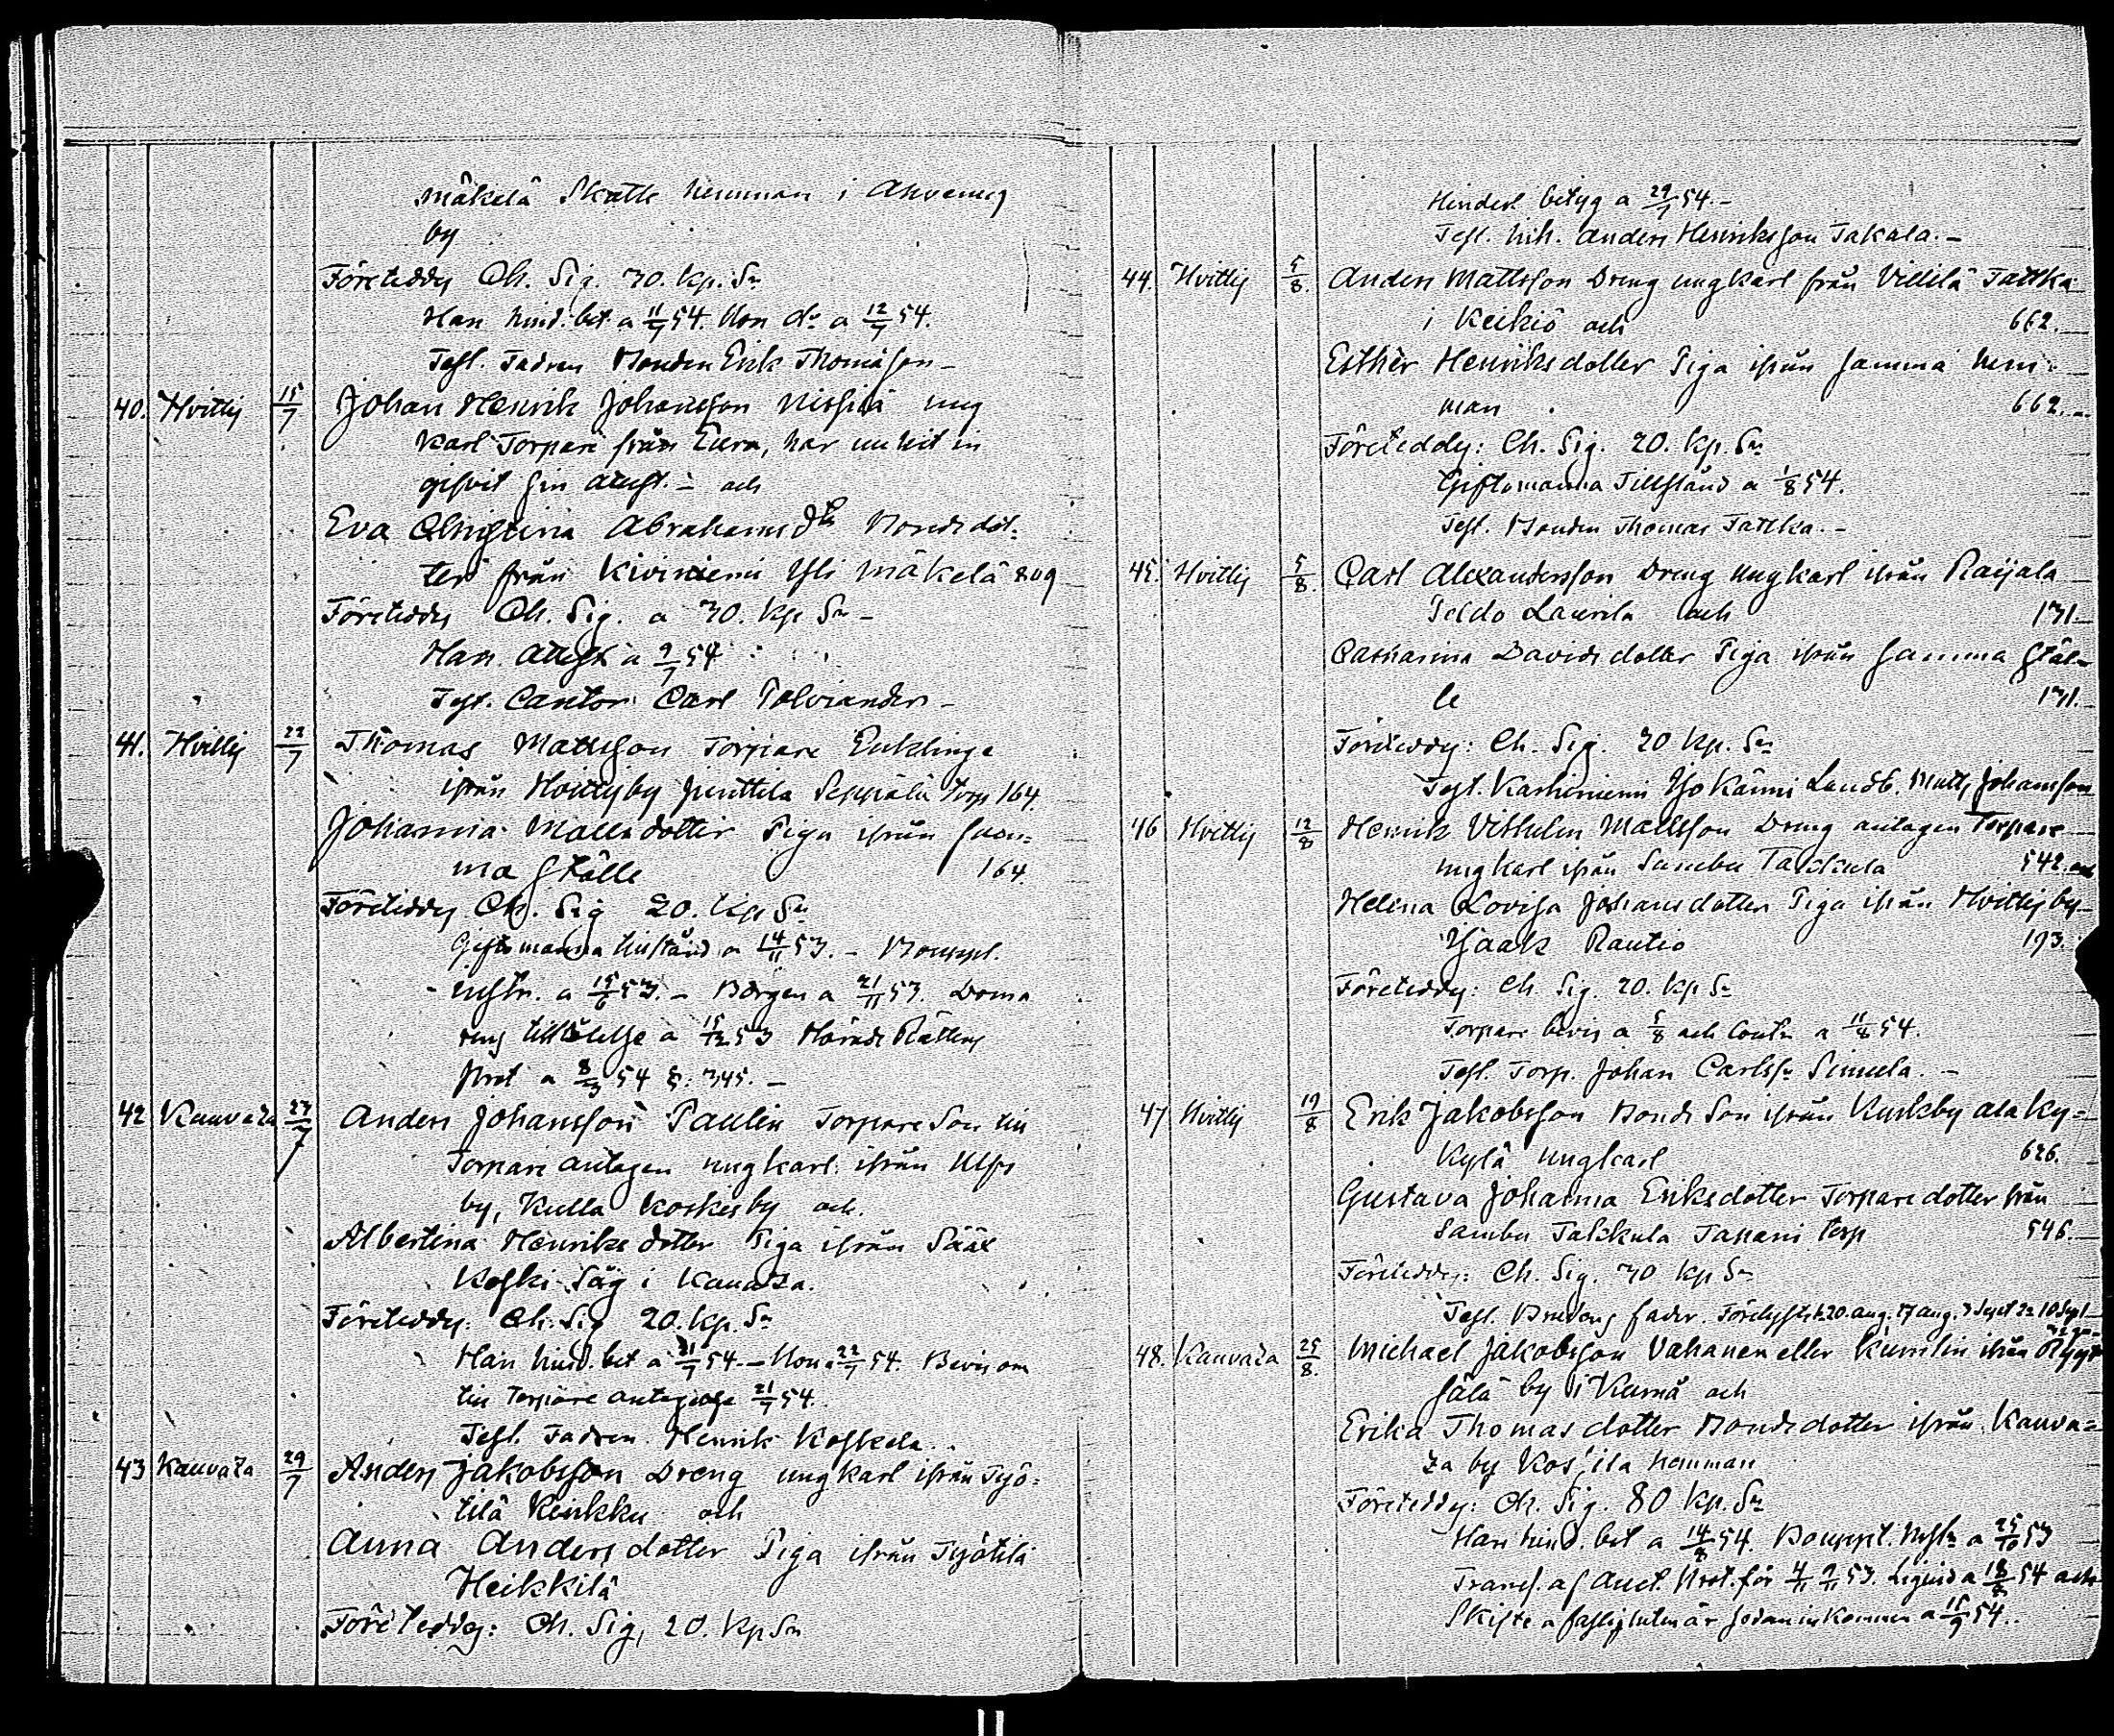 Mäkelä Skatte hemman i Ahvenus
by
Företeddes Ch. Sig. 30. kp. Sr
Han hind. bet. a 11/7 54. Hon do a 12/7 54.
Test. Fadren Bonden Erik Thomasson -
40. Hvittis 15/7 Johan Henrik Johansson Nissilä ung
karl Torpare från Eura, har muht in
gifvit sin attest. - och
Eva Christina Abrahams dtr Bonde dot-
ter från Kiviniemi Yli Mäkelä 809
Företeddes Ch. Sig. a 30. kp Sr -
Han attest a 9/7 54
Test. Cantor Carl Polviander -
41. Hvittis 22/7 Thomas Mattsson Torpare Enklinge
ifrån Hvittisby Junttila Seppälä torp 164.
Johanna Mattsdotter Piga ifrån sam-
ma ställe 164.
Företeddes Ch. Sig 20. kp Sr
Giftomanna tillstånd a 14/11 53. - Bouppt.
instr. a 15/6 53. - Borgen a 21/11 53. Doma
rens tillåtelse a 15/12 53 Härads Rättens
Prot a 8/3 54 §: 345. -
42 Kauvatsa 23/7 Anders Johansson Paulin Torpare Son till
Torpare antagen ungkarl ifrån Ulfs
by, Kulla Koskis by och
Albertina Henriksdotter Piga ifrån Sääx
Koski Såg i Kauvatsa.
Företeddes: Ch. Sig 20. kp. Sr
Han hind. bet a 21/7 54. - Hon a 22/7 54. Bevis om
till Torpare antagen a 21/7 54.
Test. Fadren Henrik Koskela.
43 Kauvatsa 29/7 Anders Jakobsson Dreng ungkarl ifrån Työ-
tilä Kenkku och
Anna Andersdotter Piga ifrån Työtilä
Heikkilä
Företeddes: Ch. Sig, 20. kp Sr
Hinderl betyg a 29/7 54. -
Test. hh. Anders Henriksson Takala. -
44. Hvittis 5/8. Anders Mattsson Dreng ungkarl från Villilä Tattka
i Keikiö och 662.
Esther Henriksdotter Piga ifrån samma hem-
man 662.
Företeddes: Ch. Sig. 20. kp. Sr
Giftomanna Tillstånd a 1/8 54.
Test. Bonden Thomas Tattka. -
45. Hvittis 5/8. Carl Alexandersson Dreng ungkarl ifrån Raijala
Peldo Laurila och 171.
Catharina Davidsdotter Piga ifrån samma stäl-
le 171.
Företeddes: Ch. Sig. 20 kp. Sr
Test. Karhiniemi Iso Känni Landb. Matts Johansson
46 Hvittis 12/8 Henrik Vilhelm Mattsson Dreng antagen Torpare
ungkarl ifrån Sambu Takkula 542. och
Helena Lovisa Johansdotter Piga ifrån Hvittisby
Isaak Rautio 193.
Företeddes: Ch. Sig. 20. kp Sr
Torpare bevis a 5/8 och Contr a 11/8 54.
Test. Torp. Johan Carlss. Simula. -
47 Hvittis 19/8 Erik Jakobsson Bonde Son ifrån Kurkby ala Ky-
Kylä ungkarl 626.
Gustava Johanna Eriksdotter Torpare dotter från
Sambu Takkula Tapani torp 546.
Företeddes: Ch. Sig. 30 kp Sr
Test. Brudens fader. Förelystes d. 20. aug. 27 aug. 3 Sept 22 10 Sept
48. Kauvatsa 25/8. Michael Jakobsson Vahanen eller Kumlin ifrån Ryyt
sälä by i Kumå och
Erika Thomasdotter Bondedotter ifrån Kauva-
tsa by Kos'ila hemman
Företeddes: Ch. Sig. 80 kp. Sr
Han hind. bet a 14/8 54. Bouppt. Instr a 25/10 53
Transf. af Auct. Prot. för 4/11 9/11 53. Liquid a 18/8 54 och
Skifte a fastigheten är sedan inkommen a 15/9 54.